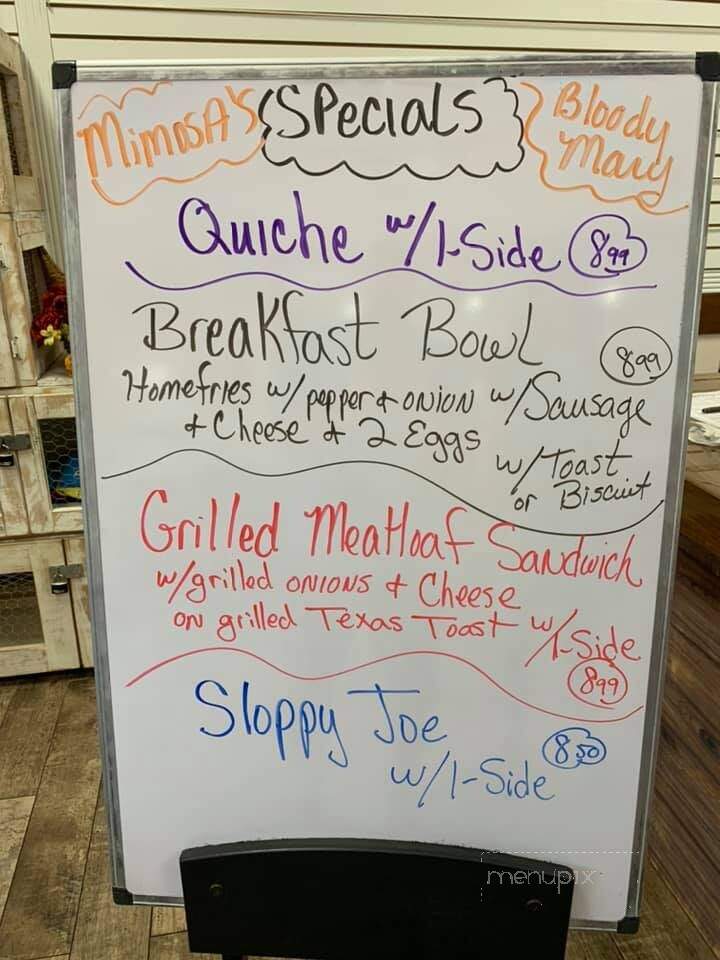 MimosA's
Specials
Bloody
Mary
Quiche w/1-Side 8.99
Breakfast Bowl
8.99
Homefries w/pepper & onion w/Sausage
& Cheese & 2 Eggs
w/Toast
or Biscuit
Grilled Meatloaf Sandwich
w/grilled onions & Cheese
on grilled Texas Toast w/1-Side
8.99
Sloppy Joe
8.50
w/1-Side
menupix